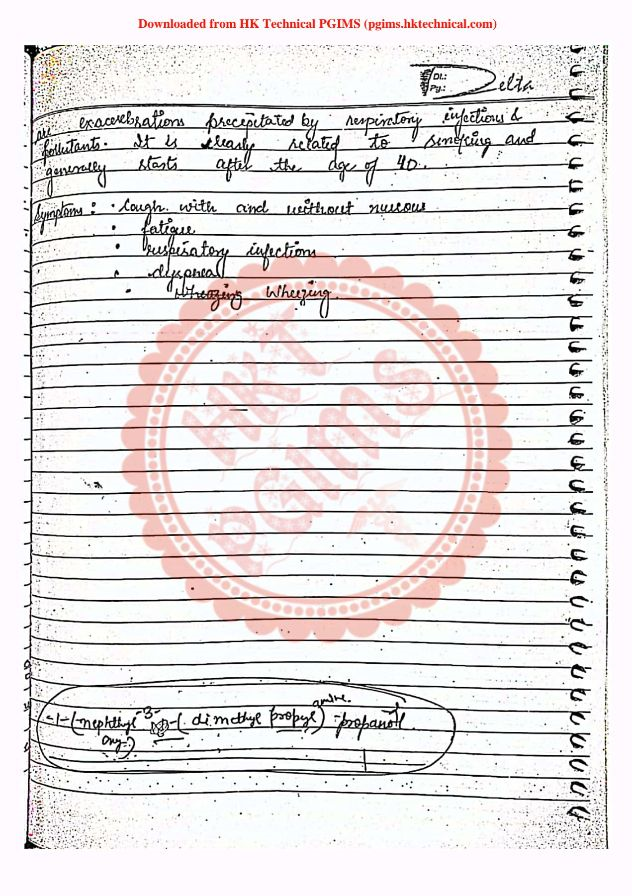 Downloaded from HK Technical PGIMS (pgims.hktechnical.com)
Dt.:
Pg.:
Delta
are exacerebrations precepitated by respiratory infections &
pollutants. It is clearly related to smoking and
generally starts after the age of 40.
Symptoms : · Cough with and without mucous
· fatigue
· respiratory infections
· dyspnea
· Wheezing.
HKT
PGIMS
-1-(nephthyl -3- -(dimethyl propyl) -propanol.
oxy-)
amine.